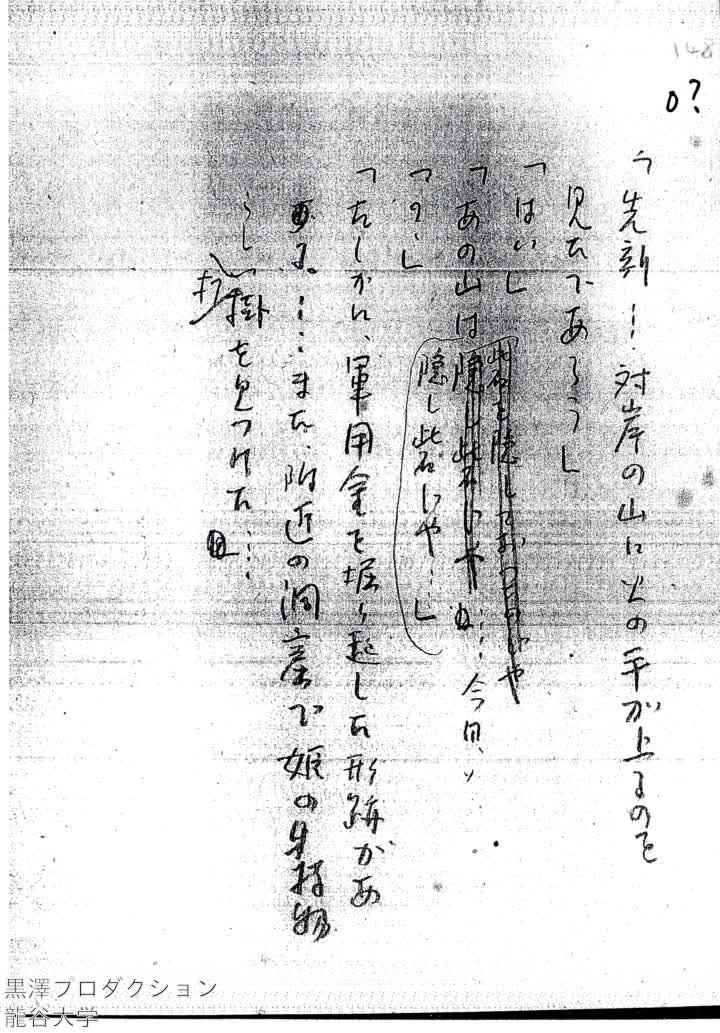 148
0?
「先刻…対岸の山に火の手が上るのを
見たであろう」
「はい」
「あの山は
砦を隠しておった
隠し砦じや
…今日、
「の」
隠し砦じや…」
「たしかに、軍用金を堀り起した形跡があ
る。…また、附近の洞窟で姫の
打掛を見つけた…
黒澤プロダクション
龍谷大学